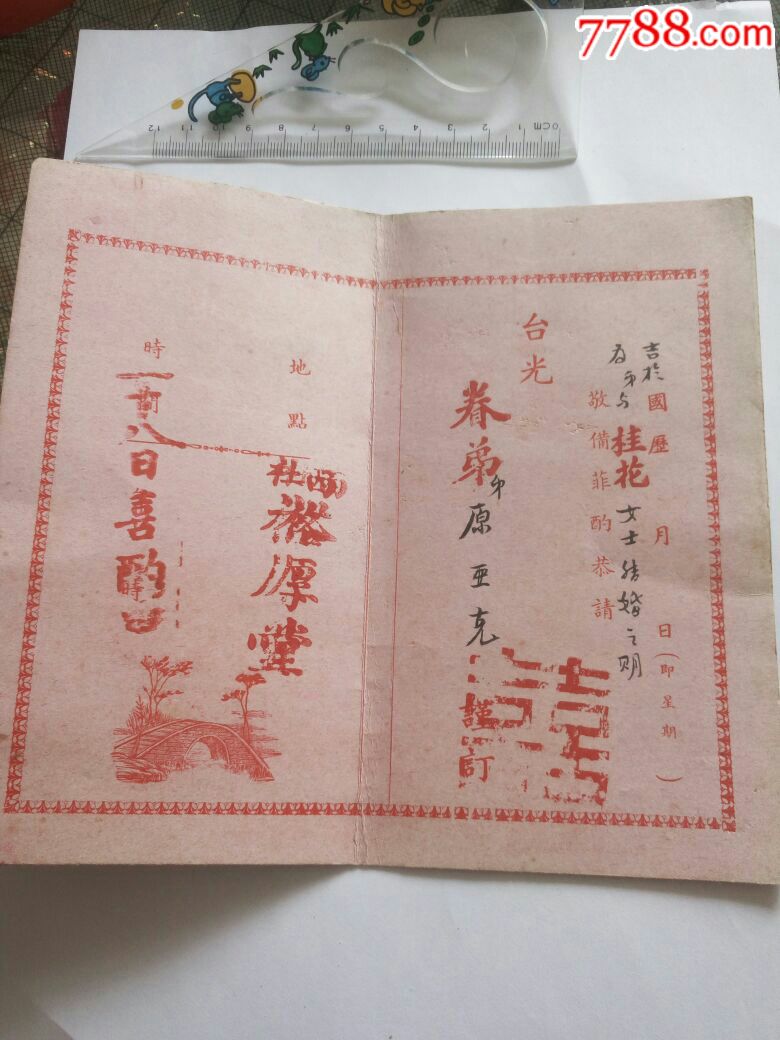 7788.com
0CM 1 2 3 4 5 6 7 8 9 10 11 12
吉於國歷 月 日(即星期 )
為弟与桂花女士結婚之期
敬備菲酌恭請
台光
眷弟弟原亚克
謹訂
囍
地點
西社
厚堂
時間
一十八日喜酌
時